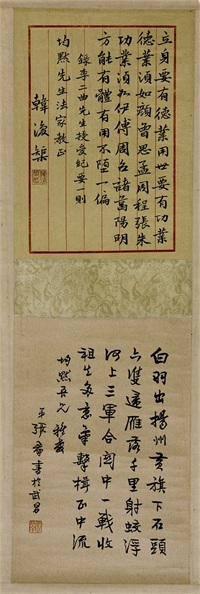 立身要有德業用世要有功業
德業須如顏曾思孟周程張朱
功業須如伊傅周召諸葛陽明
方能有體有用不墮一偏
錄李二曲先生授受紀要一則
均默先生法家教正
韓復榘
白羽出揚州黃旗下石頭
六雙歸雁落千里射蛟浮
河上三軍合關中一戰收
祖生多意氣擊楫正中流
均默吾兄
張羣書於武昌